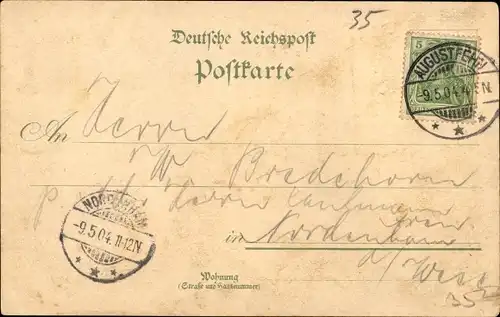 35
Deutsche Reichspost
Postkarte
5
AUGUSTFEHN
-9.5.04.
An Herrn
W Bredehorn
p. Herrn Kaufmann
NORDENHAM
-9.5.04. 11-12N
in Nordenham
a/ Weser
Wohnung
(Straße und Hausnummer)
35